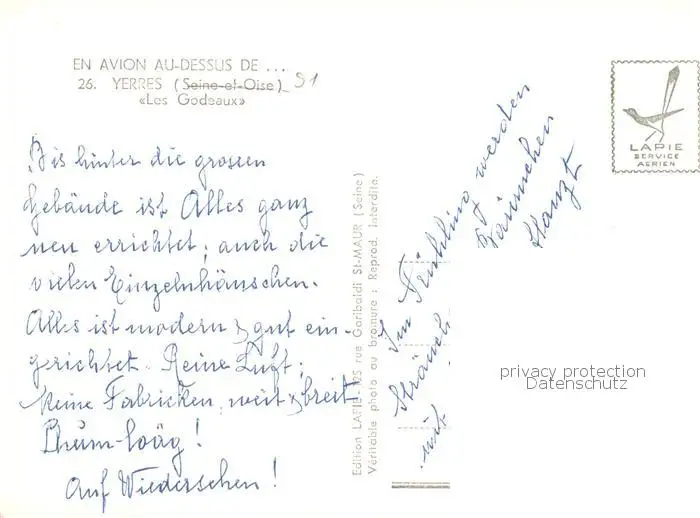 EN AVION AU-DESSUS DE ...
26. YERRES (Seine-et-Oise) 91
«Les Godeaux»
Bis hinter die grossen
Gebäude ist Alles ganz
neu errichtet; auch die
vielen Einzelnhäuschen.
Alles ist modern & gut ein-
gerichtet. Reine Luft;
keine Fabricken, weit & breit!
Chum-loäg!
Auf Wiedersehen!
Edition LAPIE, 125 rue Garibaldi St-MAUR (Seine)
Véritable photo au bromure : Reprod. Interdite.
Im Frühling werden
Sträuch Bäumchen
mit
LAPIE
SERVICE
AERIEN
privacy protection
Datenschutz